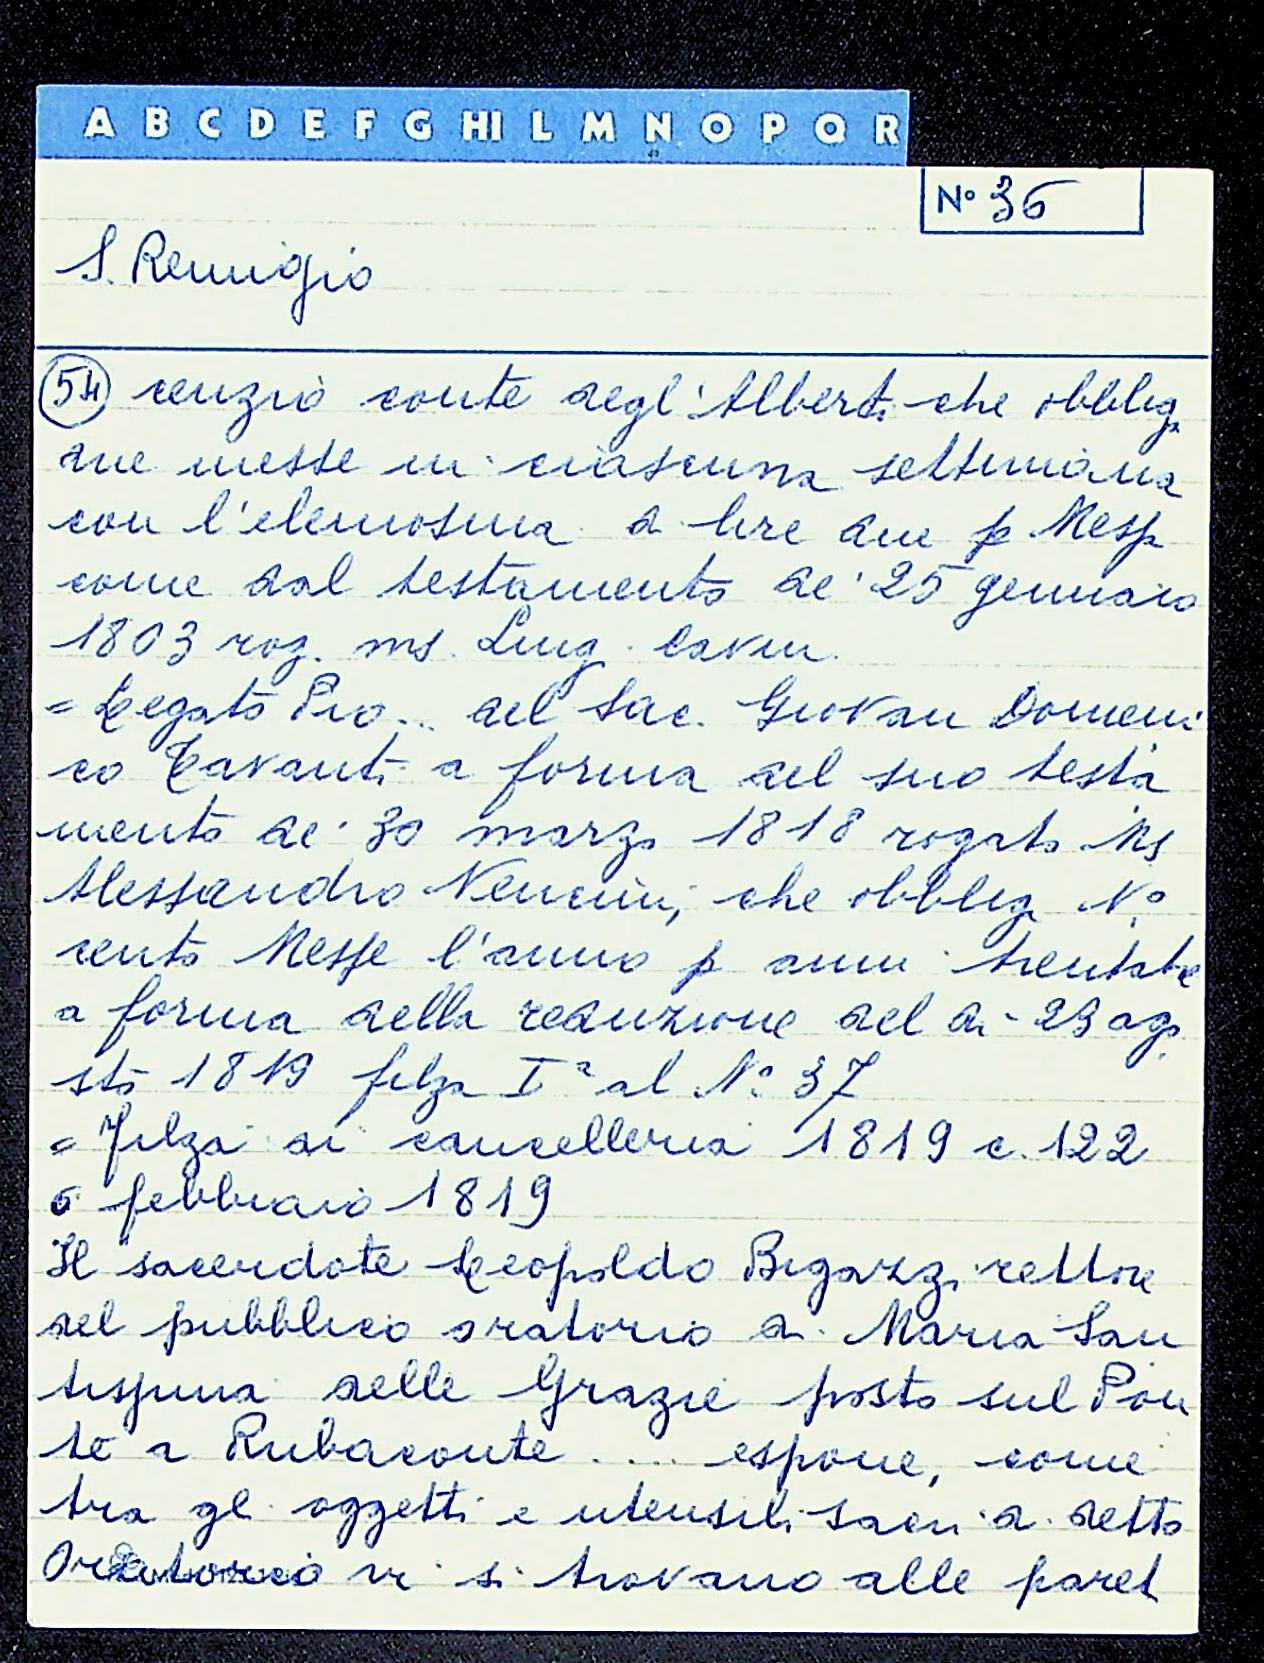 A B C D E F G HI L M N O P Q R
N° 36
S. Remigio
54 cenzio conte degl'Alberti che obblig
due messe in ciascuna settimana
con l'elemosina di lire due p Messa
come dal testamento de' 25 gennaio
1803 rog. ms. Luig. Cavin
= Legato Pio... del Sac. Giovan Domeni
co Tavanti a forma del suo testa
mento de' 30 marzo 1818 rogato Ms
Alessandro Nencini, che obbliga N°
cento Messe l'anno p anni trentatre
a forma della reduzione del dì 23 ago
sto 1819 filza Iª al N° 37
= Filza di cancelleria 1819 c. 122
6 febbraio 1819
Il sacerdote Leopoldo Bigazzi rettore
del pubblico oratorio di Maria San
tissima delle Grazie posto sul Pon
te a Rubaconte .... espone, come
tra gl. oggetti e utensili sacri di detto
Oratorio vi si trovano alle paret